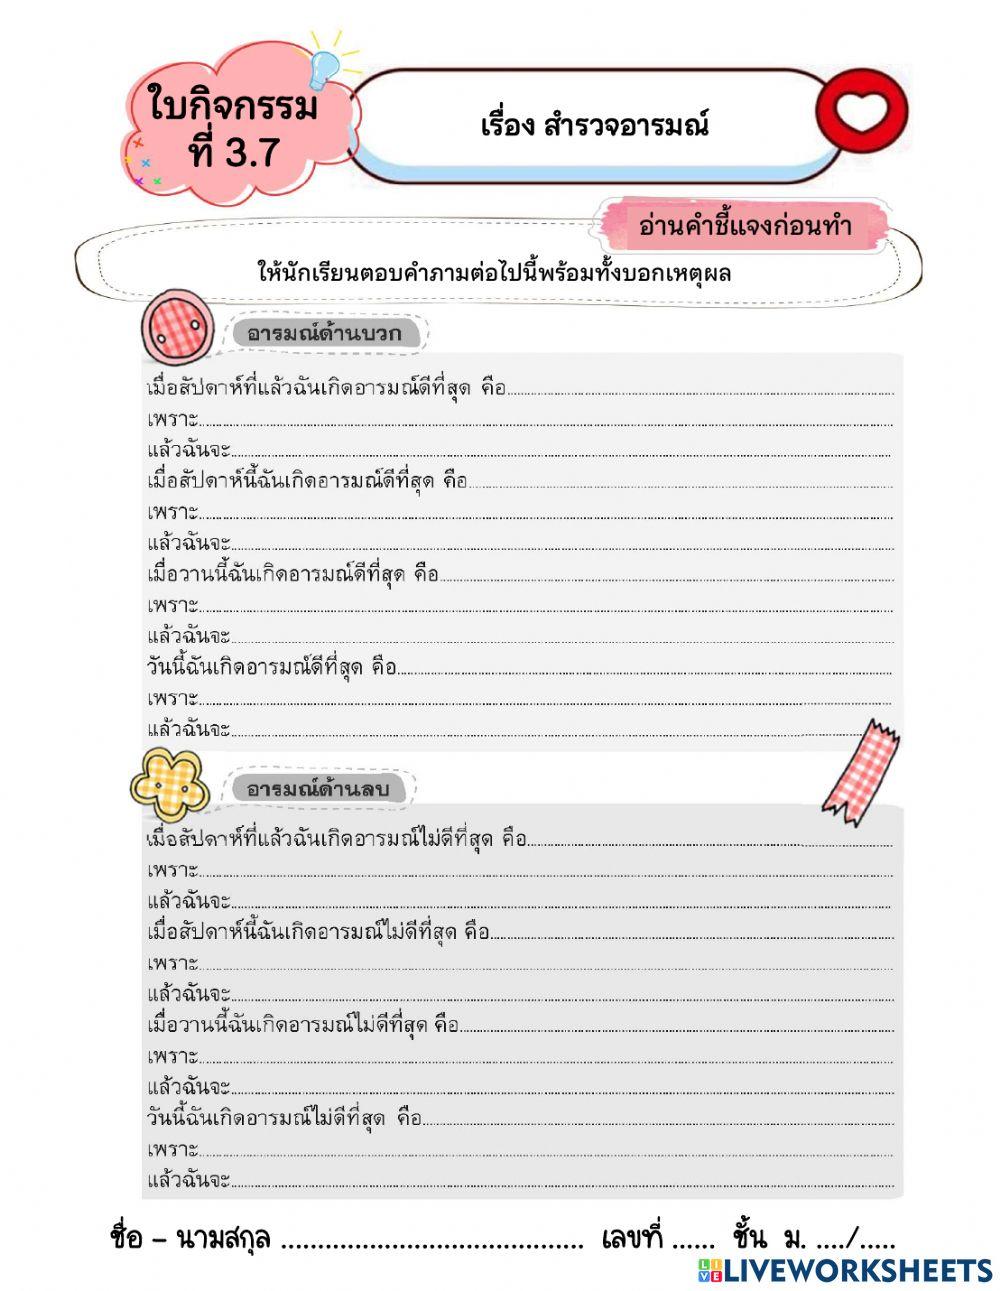 ใบกิจกรรม
ที่ 3.7
เรื่อง สำรวจอารมณ์
อ่านคำชี้แจงก่อนทำ
ให้นักเรียนตอบคำภามต่อไปนี้พร้อมทั้งบอกเหตุผล
อารมณ์ด้านบวก
เมื่อสัปดาห์ที่แล้วฉันเกิดอารมณ์ดีที่สุด คือ
เพราะ
แล้วฉันจะ
เมื่อสัปดาห์นี้ฉันเกิดอารมณ์ดีที่สุด คือ
เพราะ
แล้วฉันจะ
เมื่อวานนี้ฉันเกิดอารมณ์ดีที่สุด คือ
เพราะ
แล้วฉันจะ
วันนี้ฉันเกิดอารมณ์ดีที่สุด คือ
เพราะ
แล้วฉันจะ
อารมณ์ด้านลบ
เมื่อสัปดาห์ที่แล้วฉันเกิดอารมณ์ไม่ดีที่สุด คือ
เพราะ
แล้วฉันจะ
เมื่อสัปดาห์นี้ฉันเกิดอารมณ์ไม่ดีที่สุด คือ
เพราะ
แล้วฉันจะ
เมื่อวานนี้ฉันเกิดอารมณ์ไม่ดีที่สุด คือ
เพราะ
แล้วฉันจะ
วันนี้ฉันเกิดอารมณ์ไม่ดีที่สุด คือ
เพราะ
แล้วฉันจะ
ชื่อ – นามสกุล ...................................... เลขที่ ...... ชั้น ม. ..../.....
LIVE LIVEWORKSHEETS